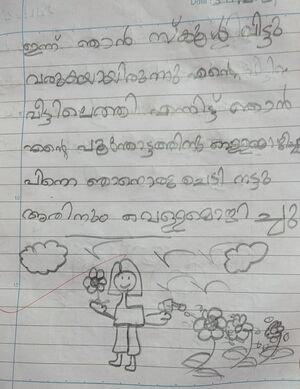 ഇന്ന് ഞാൻ സ്കൂൾ വിട്ടു
വരുകയായിരുന്നു എന്റെ
വീട്ടിലെത്തി എന്നിട്ട് ഞാൻ
എന്റെ പൂന്തോട്ടത്തിനു വെള്ളമൊഴിച്ചു
പിന്നെ ഞാനൊരു ചെടി നട്ടു
അതിനും വെള്ളമൊഴി ച്ചു